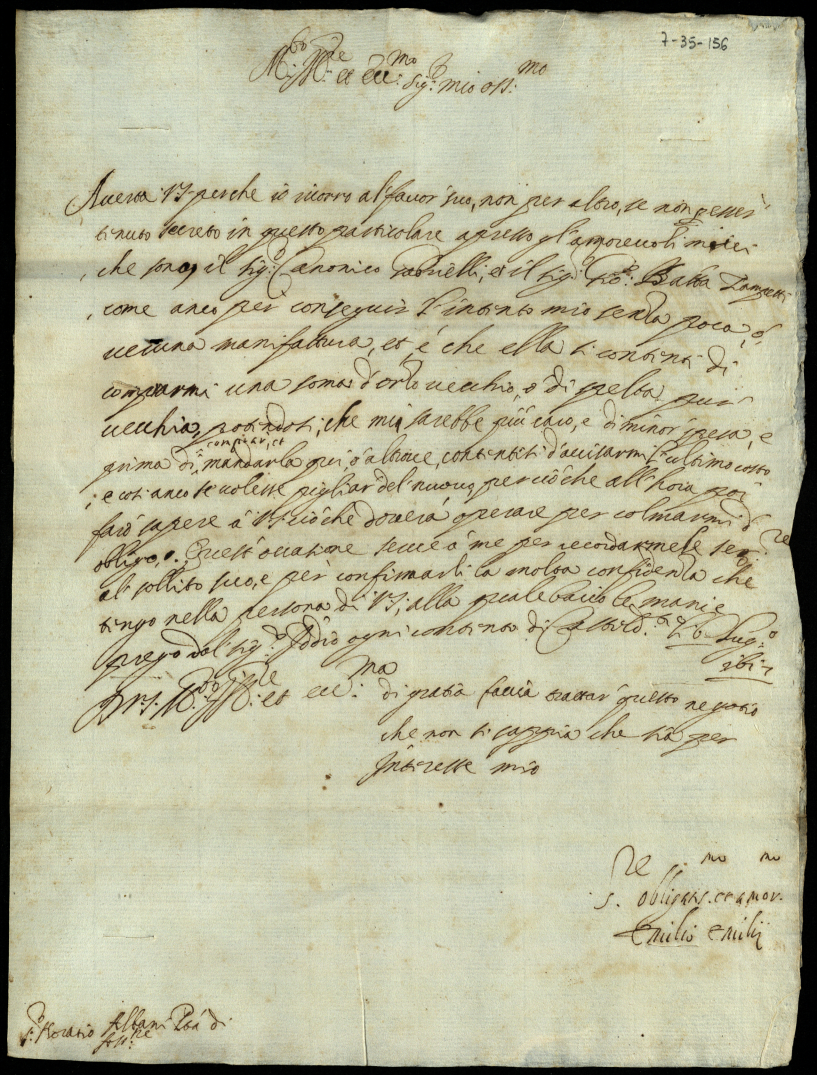 7-35-156
M.to Ill.re et ecc.mo Sig.r mio oss.mo
Averta VS perche io ricorro al favor suo, non per altro, se non per esser
tenuto secreto in questo particolare apresso gl'amorevoli miei
che sono il sig.r Canonico et il sig.r Gio: Batta
come anco per conseguir l'intento mio senza poca, ó
veruna manifattura, et é che ella si contenti di
comprarmi una soma d'orzo vecchio, ó di spelta pur
vecchia, potendosi, che mi sarebbe più caro, e di minor spesa, e
comprar, et
prima di mandarla qui, ó altrove, contentisi d'avisarmi l'ultimo costo
e cosi anco se volesse pigliar del nuovo, perciòche all'hora poi
farò sapere á VS ciòche doverá operare per colmarmi d'
obligo. Quest'occasione serve á me per recordarmele ser.re
al solito suo, e per confirmarli la molta confidenza che
tengo nella persona di VS, alla quale bacio le mani e
prego dal sig.r Iddio ogni contento di li 6 Lug.o
D VS. M.to Ill.re et ecc.ma di gratia faccia trattar questo negotio
che non si sappia che sia per
Interesse mio
S.re obligatis.mo et amor.mo
Emilio Emilij
S.r Horatio Albani di